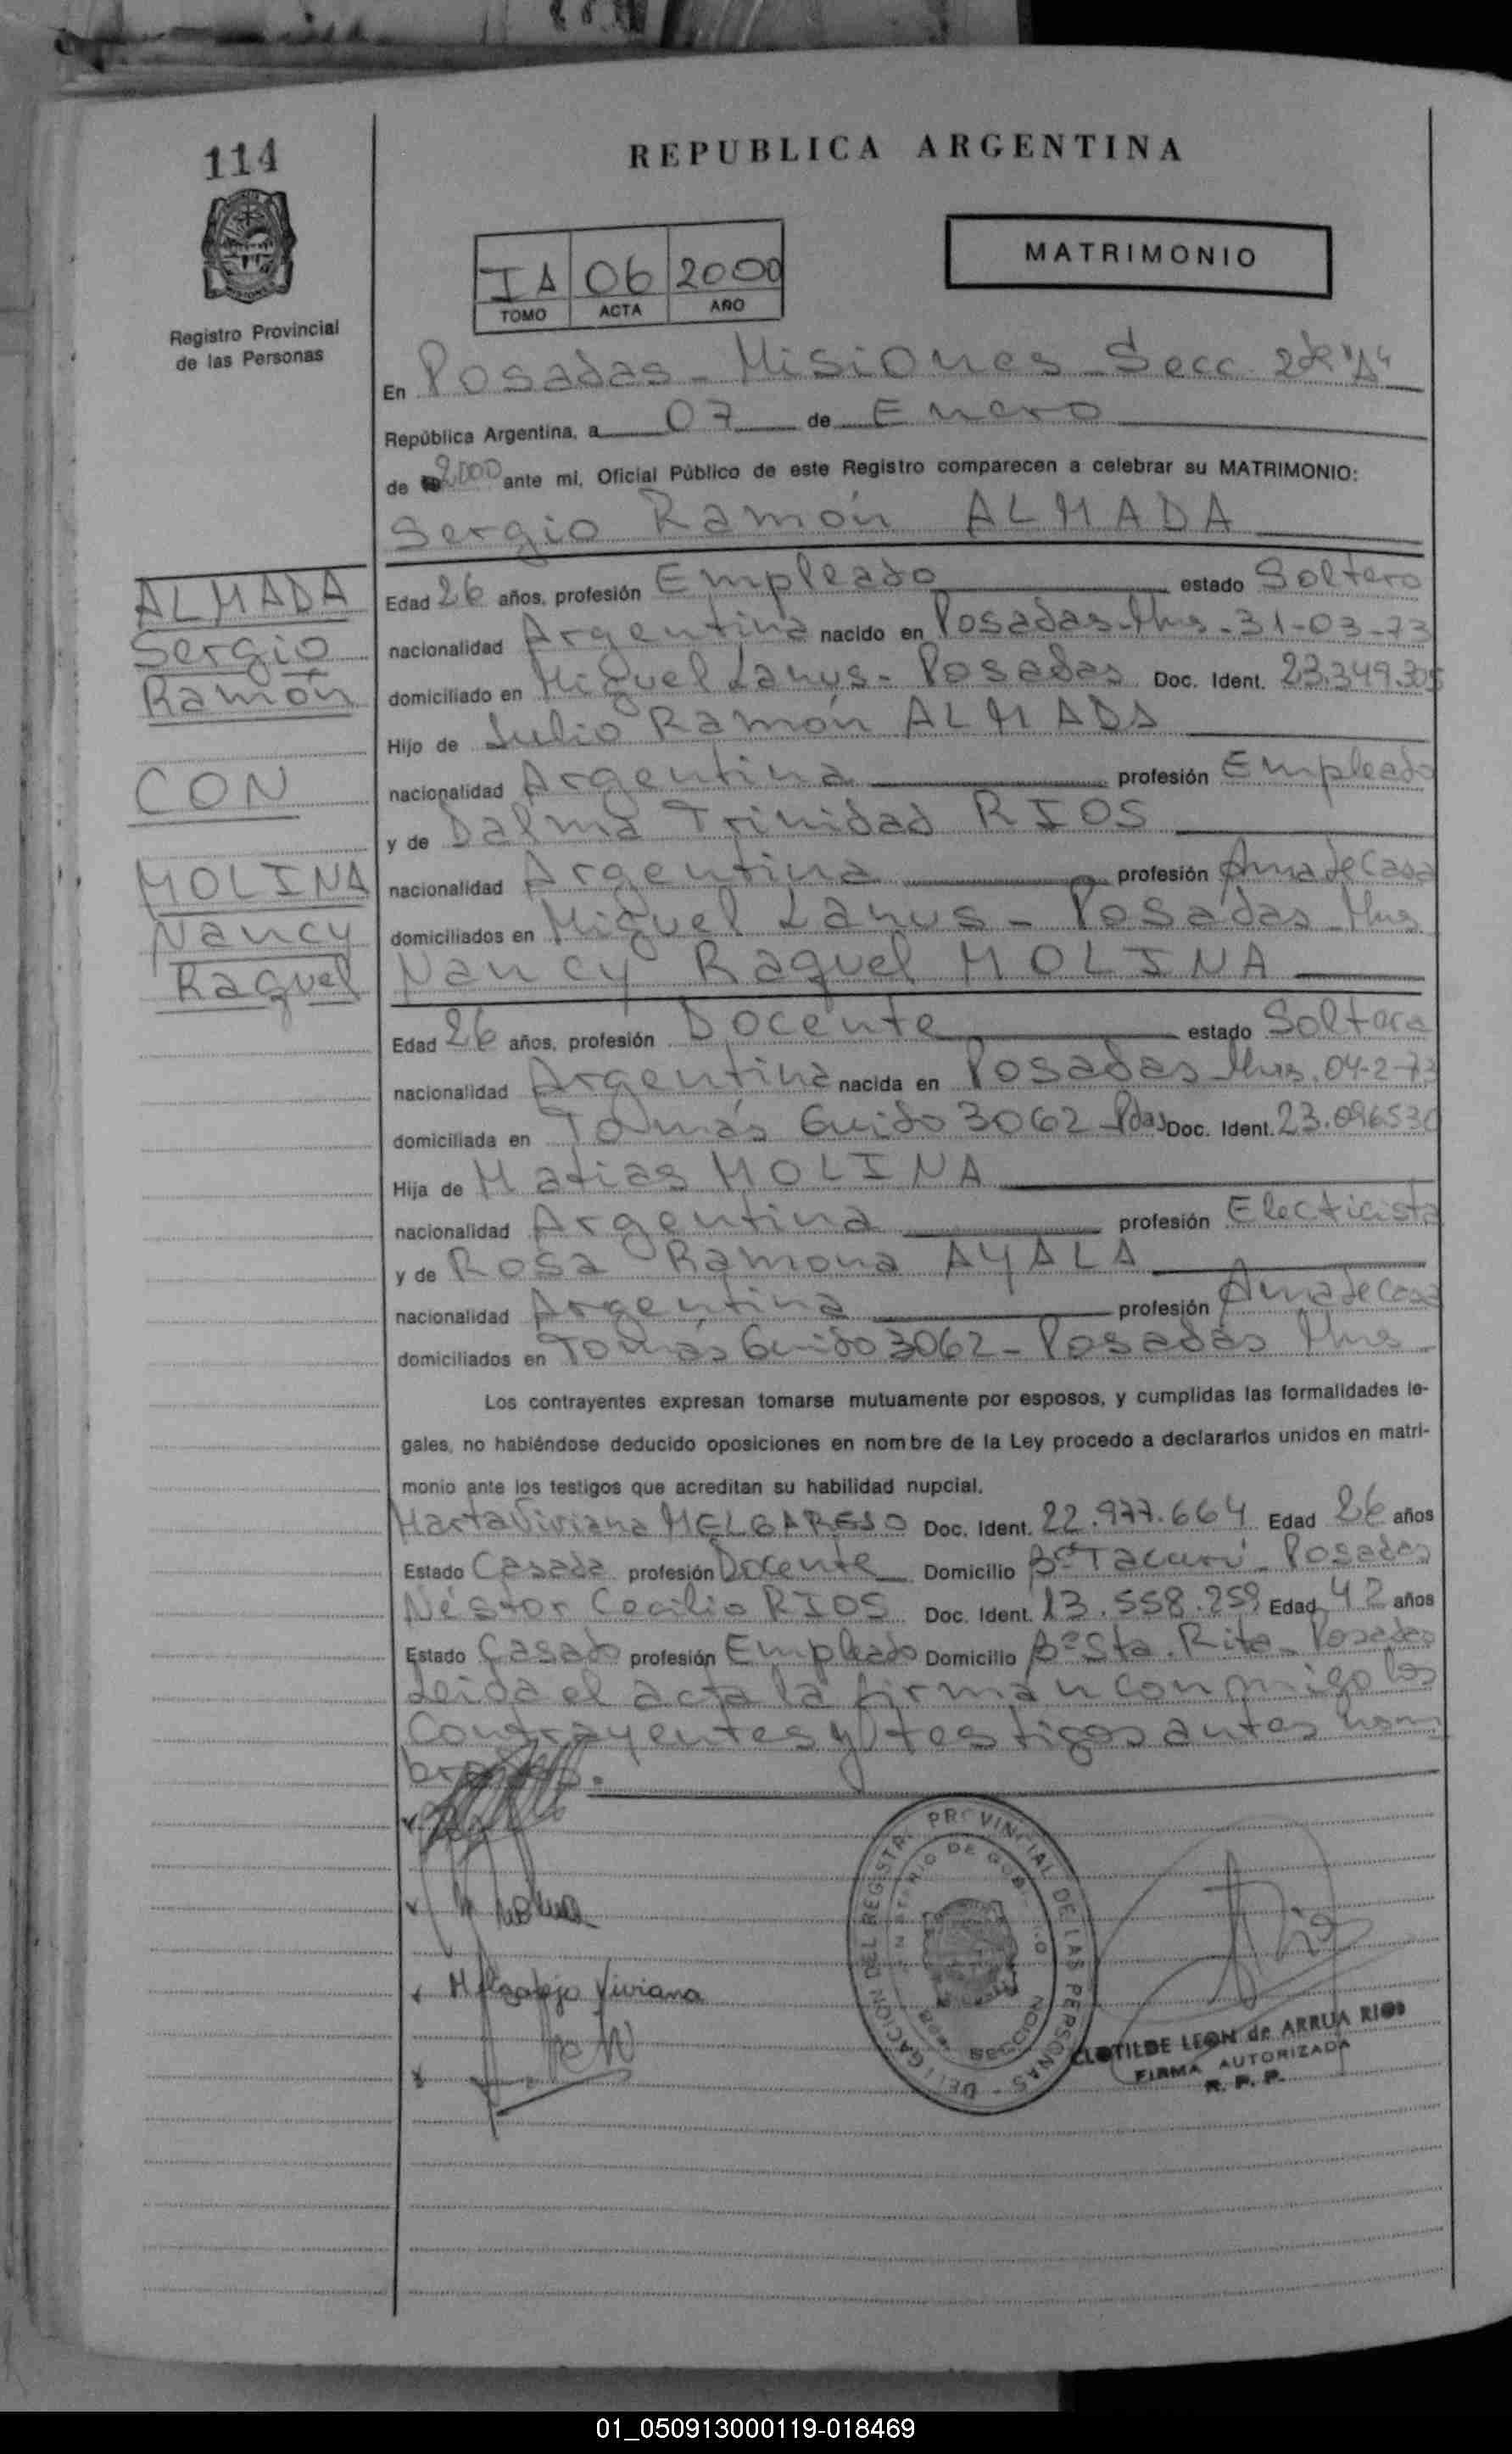 114
REPUBLICA ARGENTINA
MATRIMONIO
IA 06 2000
TOMO ACTA AÑO
Registro Provincial
de las Personas
En Posadas - Misiones - Secc. 2da "A"
República Argentina, a 07 de Enero
de 2000 ante mi, Oficial Público de este Registro comparecen a celebrar su MATRIMONIO:
Sergio Ramón ALMADA
ALMADA
Sergio
Ramón
CON
MOLINA
Nancy
Raquel
Edad 26 años, profesión Empleado estado Soltero
nacionalidad Argentina nacido en Posadas-Mns - 31-03-73
domiciliado en Miguel Lanus - Posadas Doc. Ident. 23.349.305
Hijo de Julio Ramón ALMADA
nacionalidad Argentina profesión Empleado
y de Dalma Trinidad RIOS
nacionalidad Argentina profesión Ama de Casa
domiciliados en Miguel Lanus - Posadas - Mns
Nancy Raquel MOLINA
Edad 26 años, profesión Docente estado Soltera
nacionalidad Argentina nacida en Posadas Mns. 04-2-73
domiciliada en Tomás Guido 3062 - Pdas Doc. Ident. 23.096530
Hija de Matias MOLINA
nacionalidad Argentina profesión Electicista
y de Rosa Ramona AYALA
nacionalidad Argentina profesión Ama de Casa
domiciliados en Tomás Guido 3062 - Posadas Mns
Los contrayentes expresan tomarse mutuamente por esposos, y cumplidas las formalidades le-
gales, no habiéndose deducido oposiciones en nombre de la Ley procedo a declararlos unidos en matri-
monio ante los testigos que acreditan su habilidad nupcial.
Marta Viviana MELGAREJO Doc. Ident. 22.977.664 Edad 26 años
Estado Casada profesión Docente Domicilio Bº Tacurú - Posadas
Néstor Cecilio RIOS Doc. Ident. 13.558.259 Edad 42 años
Estado Casado profesión Empleado Domicilio Bº Sta. Rita - Posadas
Leida el acta la firman conmigo los
Contrayentes y testigos antes nom
brados.
Melgarejo Viviana
DELEGACION DEL REGISTRO PROVINCIAL DE LAS PERSONAS
CLOTILDE LEON de ARRUA RIOS
FIRMA AUTORIZADA
R. P. P.
01_050913000119-018469